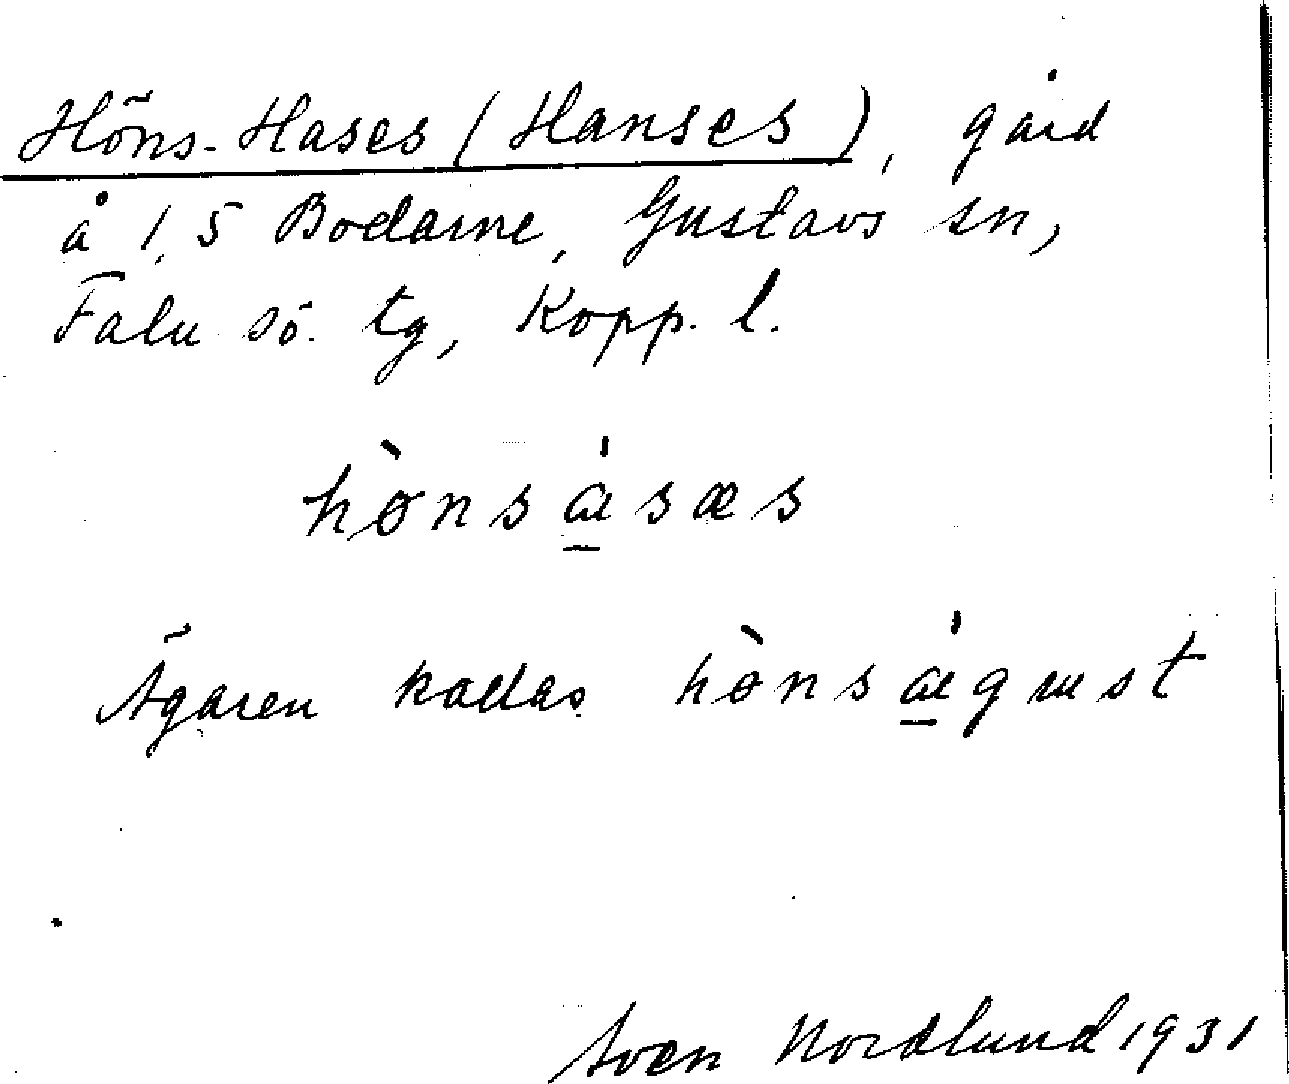 Höns-Hases (Hanses), gård
å 1,5 Bodarne, Gustavs sn,
Falu sö. tg, Kopp. l.
hònsásæs
Ägaren kallas hònságust
Sven Nordlund 1931